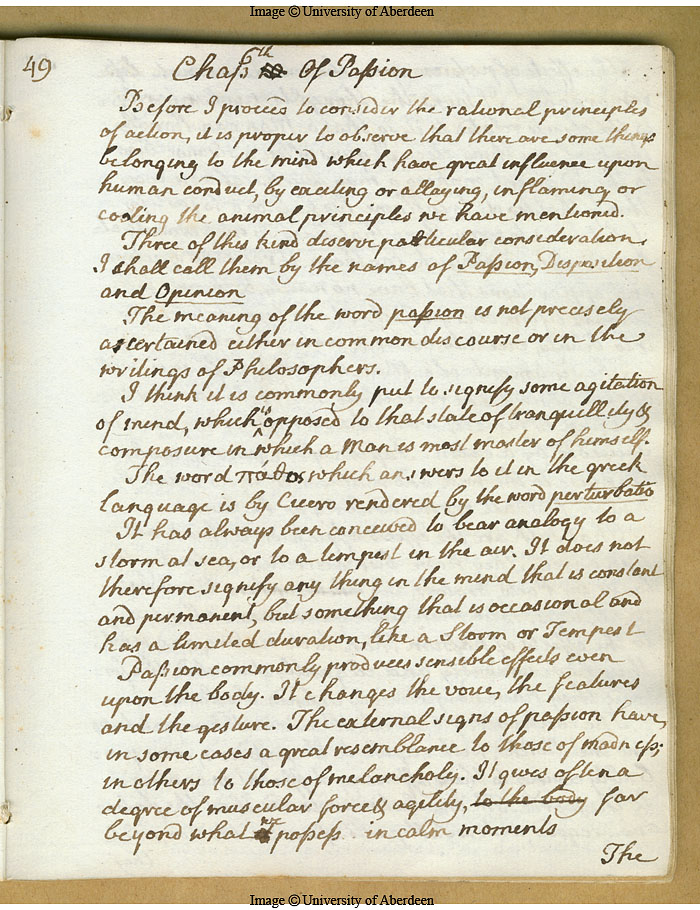 Image © University of Aberdeen
49
Chap 6th Of Passion
Before I proceed to consider the rational principles
of action, it is proper to observe that there are some things
belonging to the mind which have great influence upon
human conduct, by exciting or allaying, inflaming or
cooling the animal principles we have mentioned.
Three of this kind deserve particular consideration,
I shall call them by the names of Passion, Disposition
and Opinion
The meaning of the word passion is not precisely
ascertained either in common discourse or in the
writings of Philosophers.
I think it is commonly put to signify some agitation
of mind, which is opposed to that state of tranquillity &
composure in which a Man is most master of himself.
The word πάθος which answers to it in the greek
language is by Cicero rendered by the word perturbatio
It has always been conceived to bear analogy to a
storm at sea, or to a tempest in the air. It does not
therefore signify any thing in the mind that is constant
and permanent, but something that is occasional and
has a limited duration, like a Storm or Tempest
Passion commonly produces sensible effects even
upon the body. It changes the voice, the features
and the gesture. The external signs of passion have,
in some cases a great resemblance to those of madness;
in others to those of melancholy. It gives often a
degree of muscular force & agility, to the body far
beyond what we possess in calm moments
The
Image © University of Aberdeen